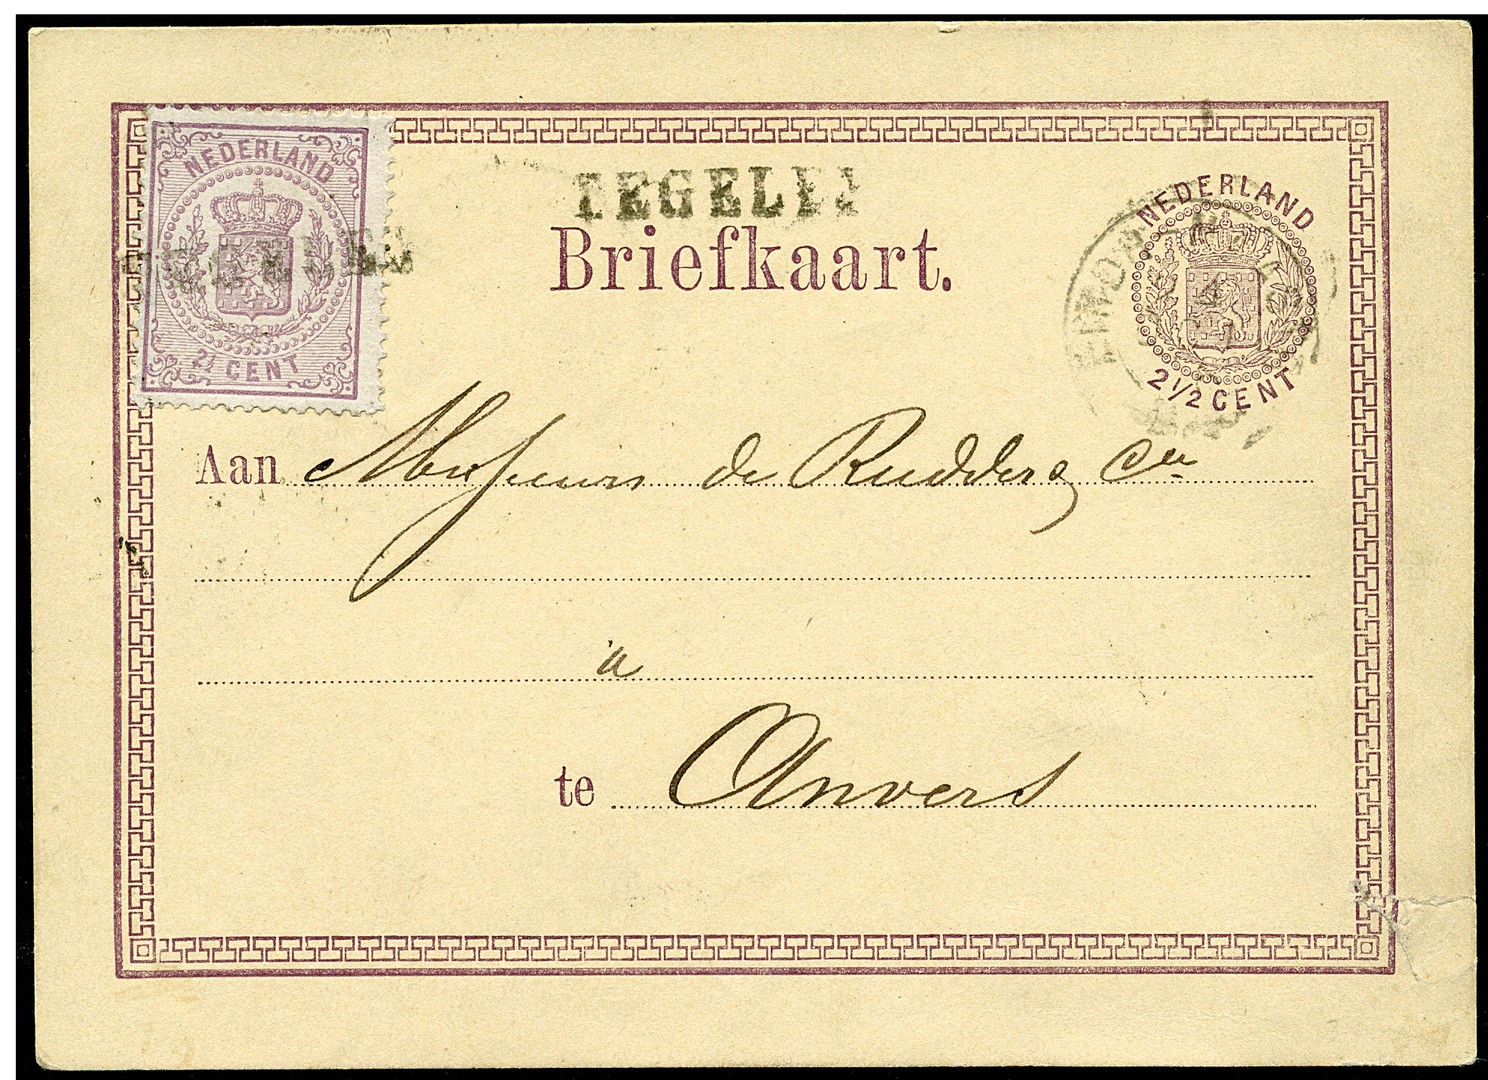 NEDERLAND
TEGELEN
2½ CENT
TEGELEN
Briefkaart.
NEDERLAND
2 1/2 CENT
Aan Messieurs de Rudder & Cie
à
te Anvers